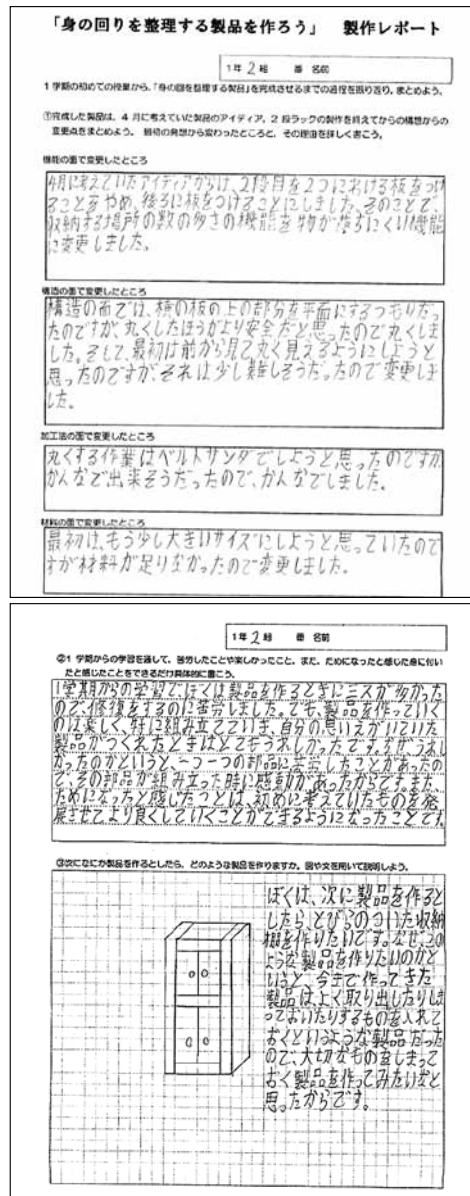 「身の回りを整理する製品を作ろう」 製作レポート
1年2組 番 名前
1学期の初めての授業から、「身の回を整理する製品」を完成させるまでの過程を振り返り、まとめよう。
①完成した製品は、4月に考えていた製品のアイディア、2段ラックの製作を終えてからの構想からの
変更点をまとめよう。 最初の発想から変わったところと、その理由を詳しく書こう。
機能の面で変更したところ
4月に考えていたアイディアからは、2段目を2つにわける板をつけ
ることをやめ、後ろに板をつけることにしました。そのことで、
収納する場所の数の多さの機能を物が落ちにくい機能
に変更しました。
構造の面で変更したところ
構造の面では、横の板の上の部分を平面にするつもりだっ
たのですが、丸くしたほうがより安全だと思ったので丸くしま
した。そして、最初は前から見て丸く見えるようにしようと
思ったのですが、それは少し難しそうだったので変更しま
した。
加工法の面で変更したところ
丸くする作業はベルトサンダでしようと思ったのですが、
かんなで出来そうだったので、かんなでしました。
材料の面で変更したところ
最初は、もう少し大きいサイズにしようと思っていたので
すが材料が足りなかったので変更しました。
1年2組 番 名前
②1学期からの学習を通して、苦労したことや楽しかったこと、また、ためになったと感じた身に付い
たと感じたことをできるだけ具体的に書こう。
1学期からの学習でぼくは製品を作るときにミスが多かった
ので、修復をするのに苦労しました。でも、製品を作っていく
のは楽しく、特に組み立てていき、自分の思いえがいていた
製品がつくれたときはとてもうれしかったです。なぜ、うれし
かったのかというと、一つ一つの部品に苦労したことがあったの
で、その部品が組み立った時に感動があったからです。また、
ためになったと感じたことは、初めに考えていたものを発
展させてより良くしていくことができるようになったことです。
③次になにか製品を作るとしたら、どのような製品を作りますか。図や文を用いて説明しよう。
ぼくは、次に製品を作ると
したら、とびらのついた収納
棚を作りたいです。なぜ、この
ような製品を作りたいのかと
いうと、今まで作ってきた
製品は、よく取り出したりしま
っておいたりするものを入れて
おくというような製品だった
ので、大切なものをしまって
おく製品を作ってみたいなと
思ったからです。